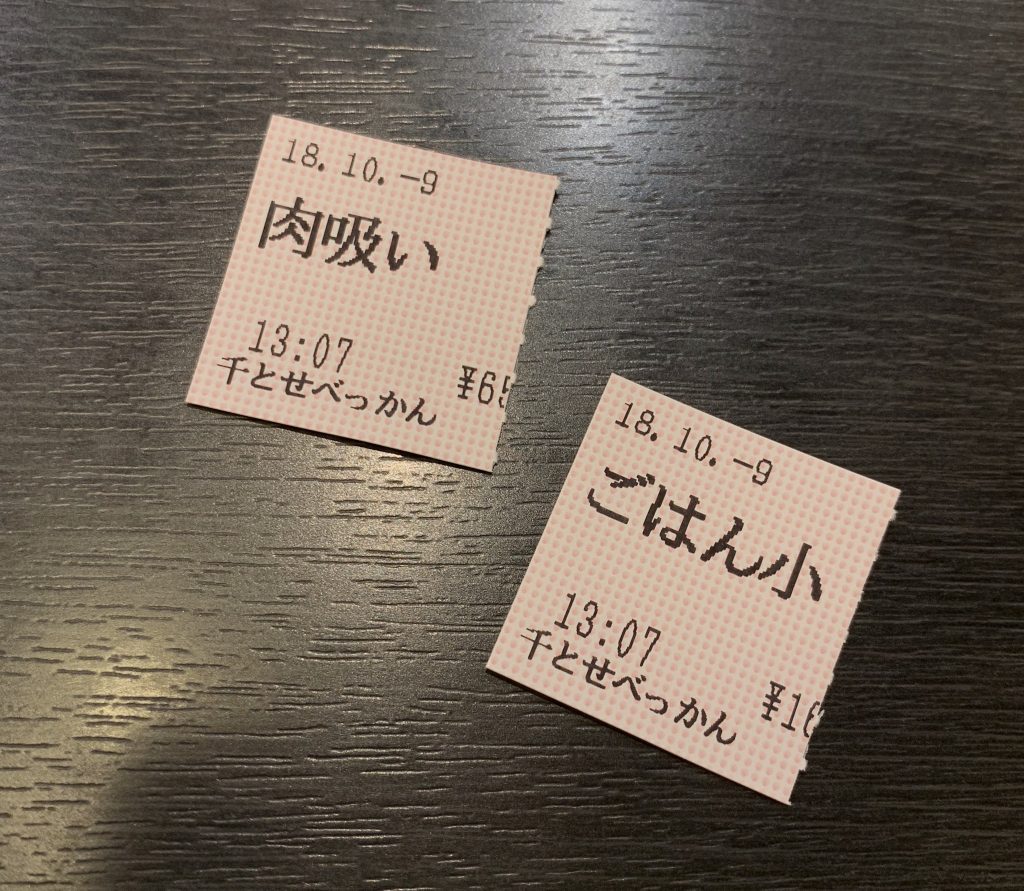 18.10.-9
肉吸い
13:07
千とせべっかん
¥65
18.10.-9
ごはん小
13:07
千とせべっかん
¥16